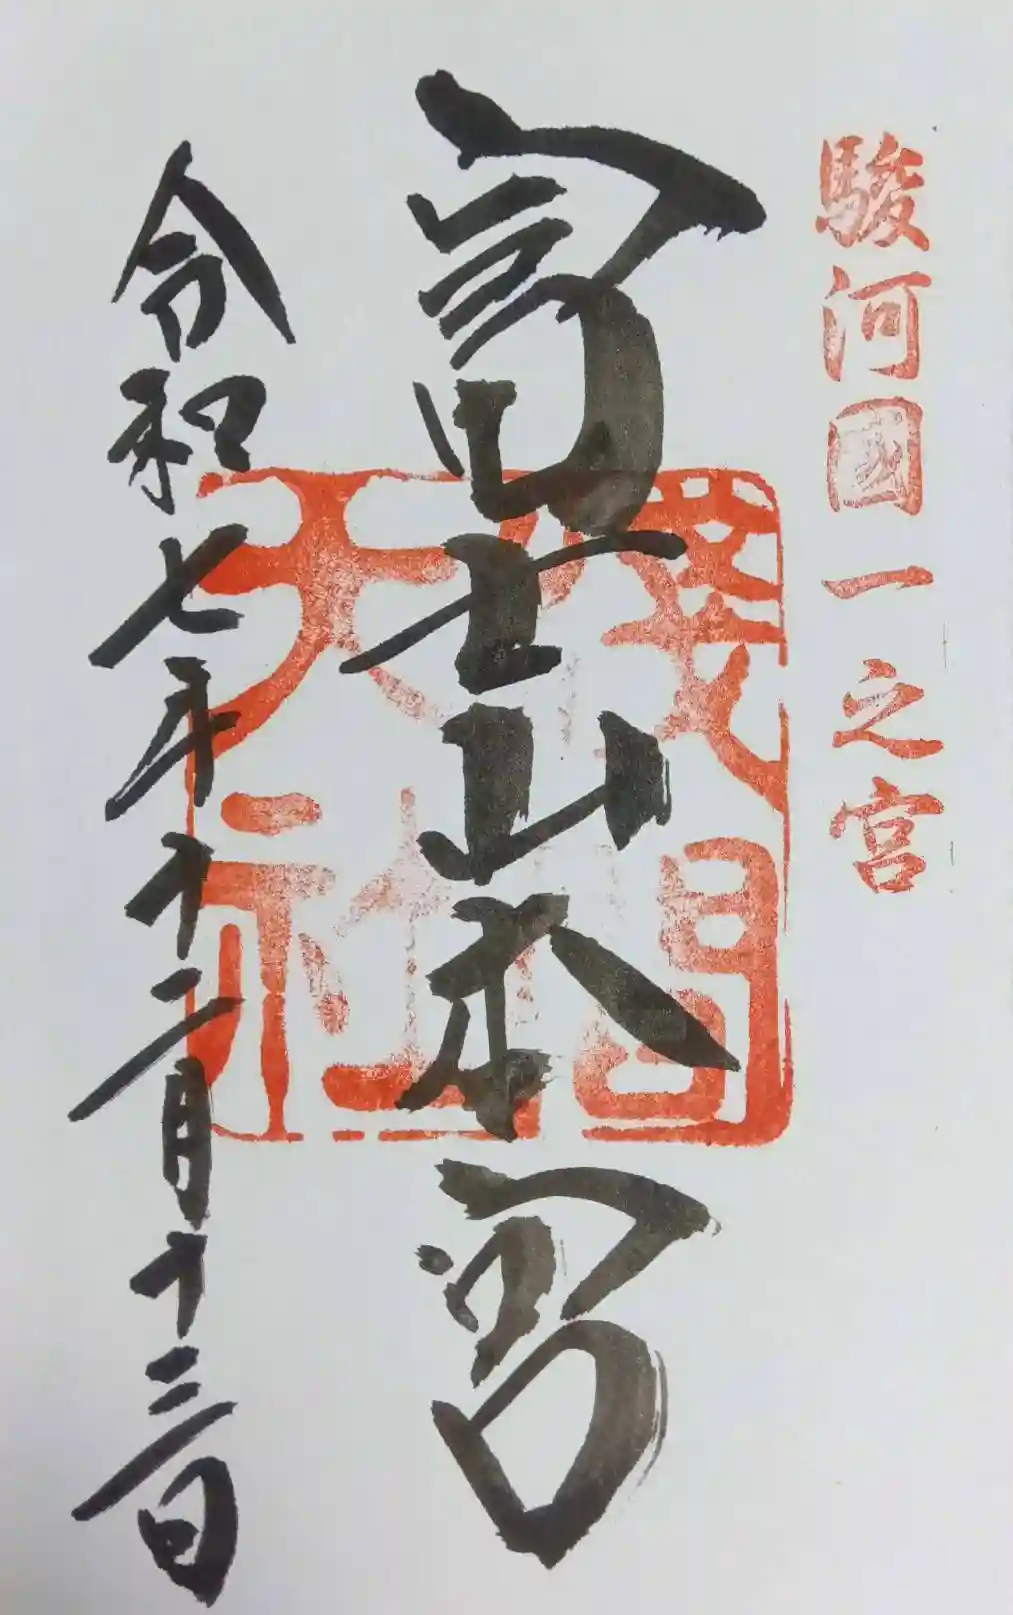 駿河國一之宮
富士山本宮
淺間大社
令和七年十二月十三日